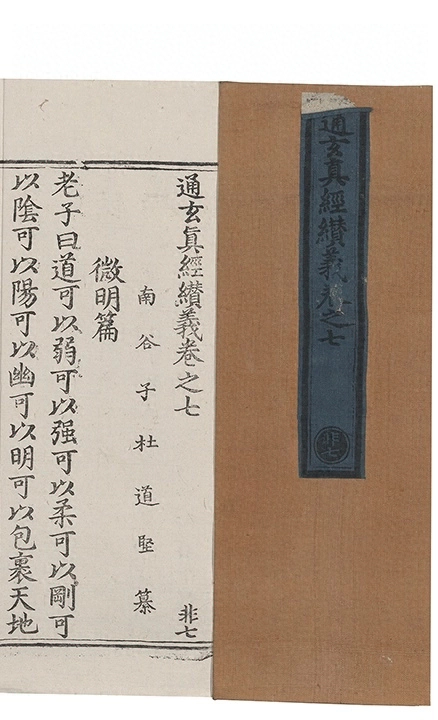 通玄真經纉義卷之七
非七
通玄真經纉義卷之七
非七
南谷子杜道堅纂
微明篇
老子曰道可以弱可以强可以柔可以剛可
以陰可以陽可以幽可以明可以包裹天地